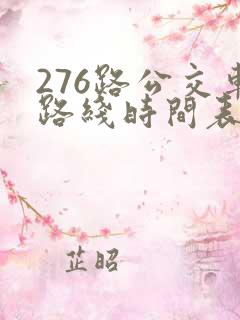 276路公交車
路綫時間表
芷昭